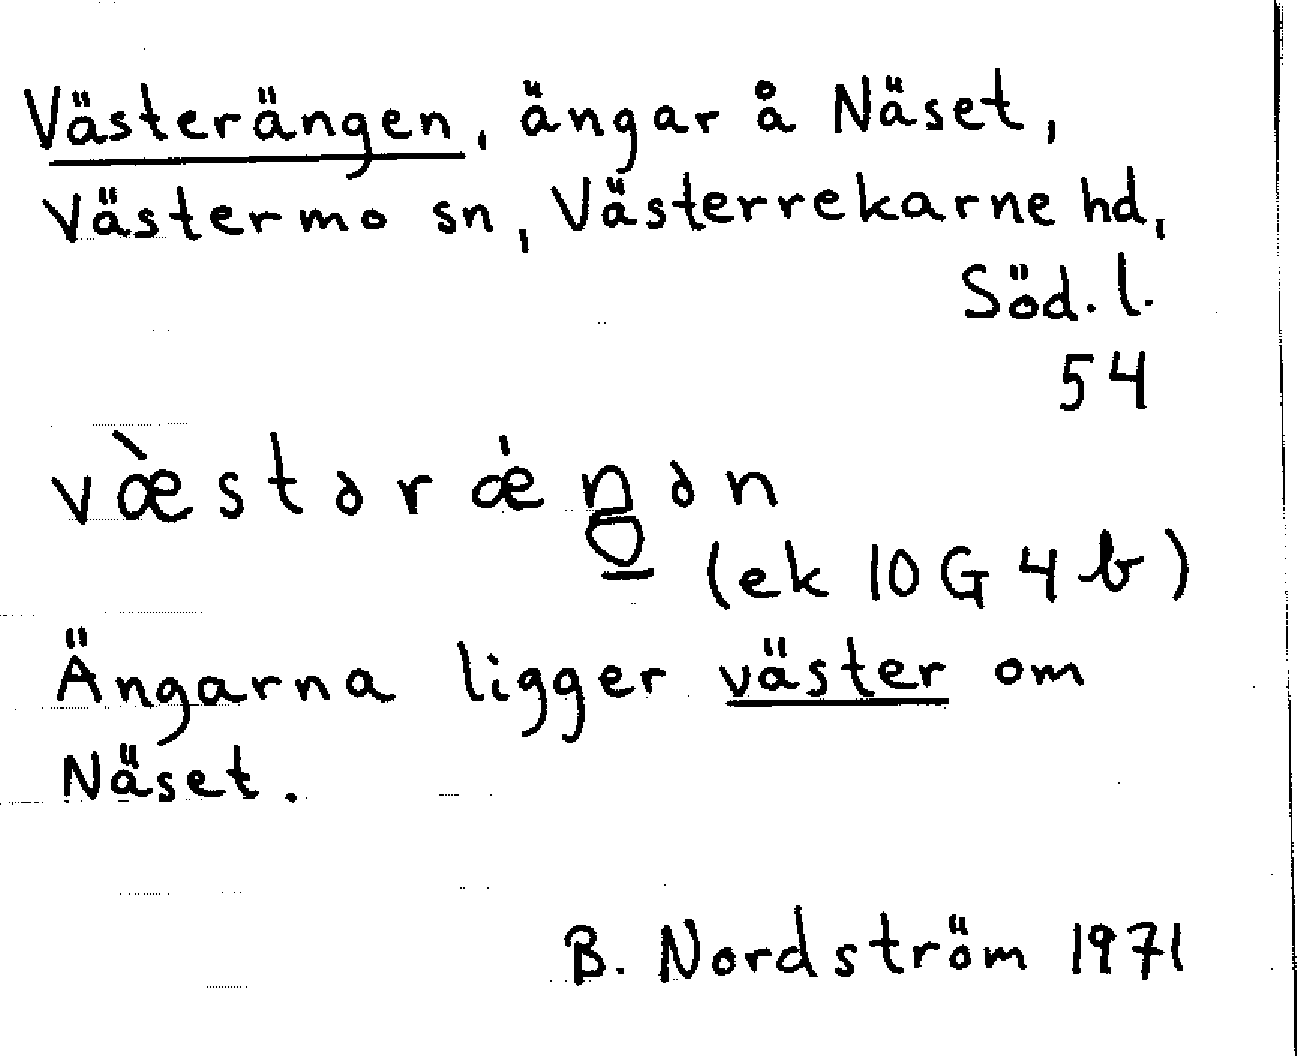 Västerängen, ängar å Näset,
Västermo sn, Västerrekarne hd,
Söd. l.
54
væ̀stərǽŋən
(ek 10G 4b)
Ängarna ligger väster om
Näset.
B. Nordström 1971